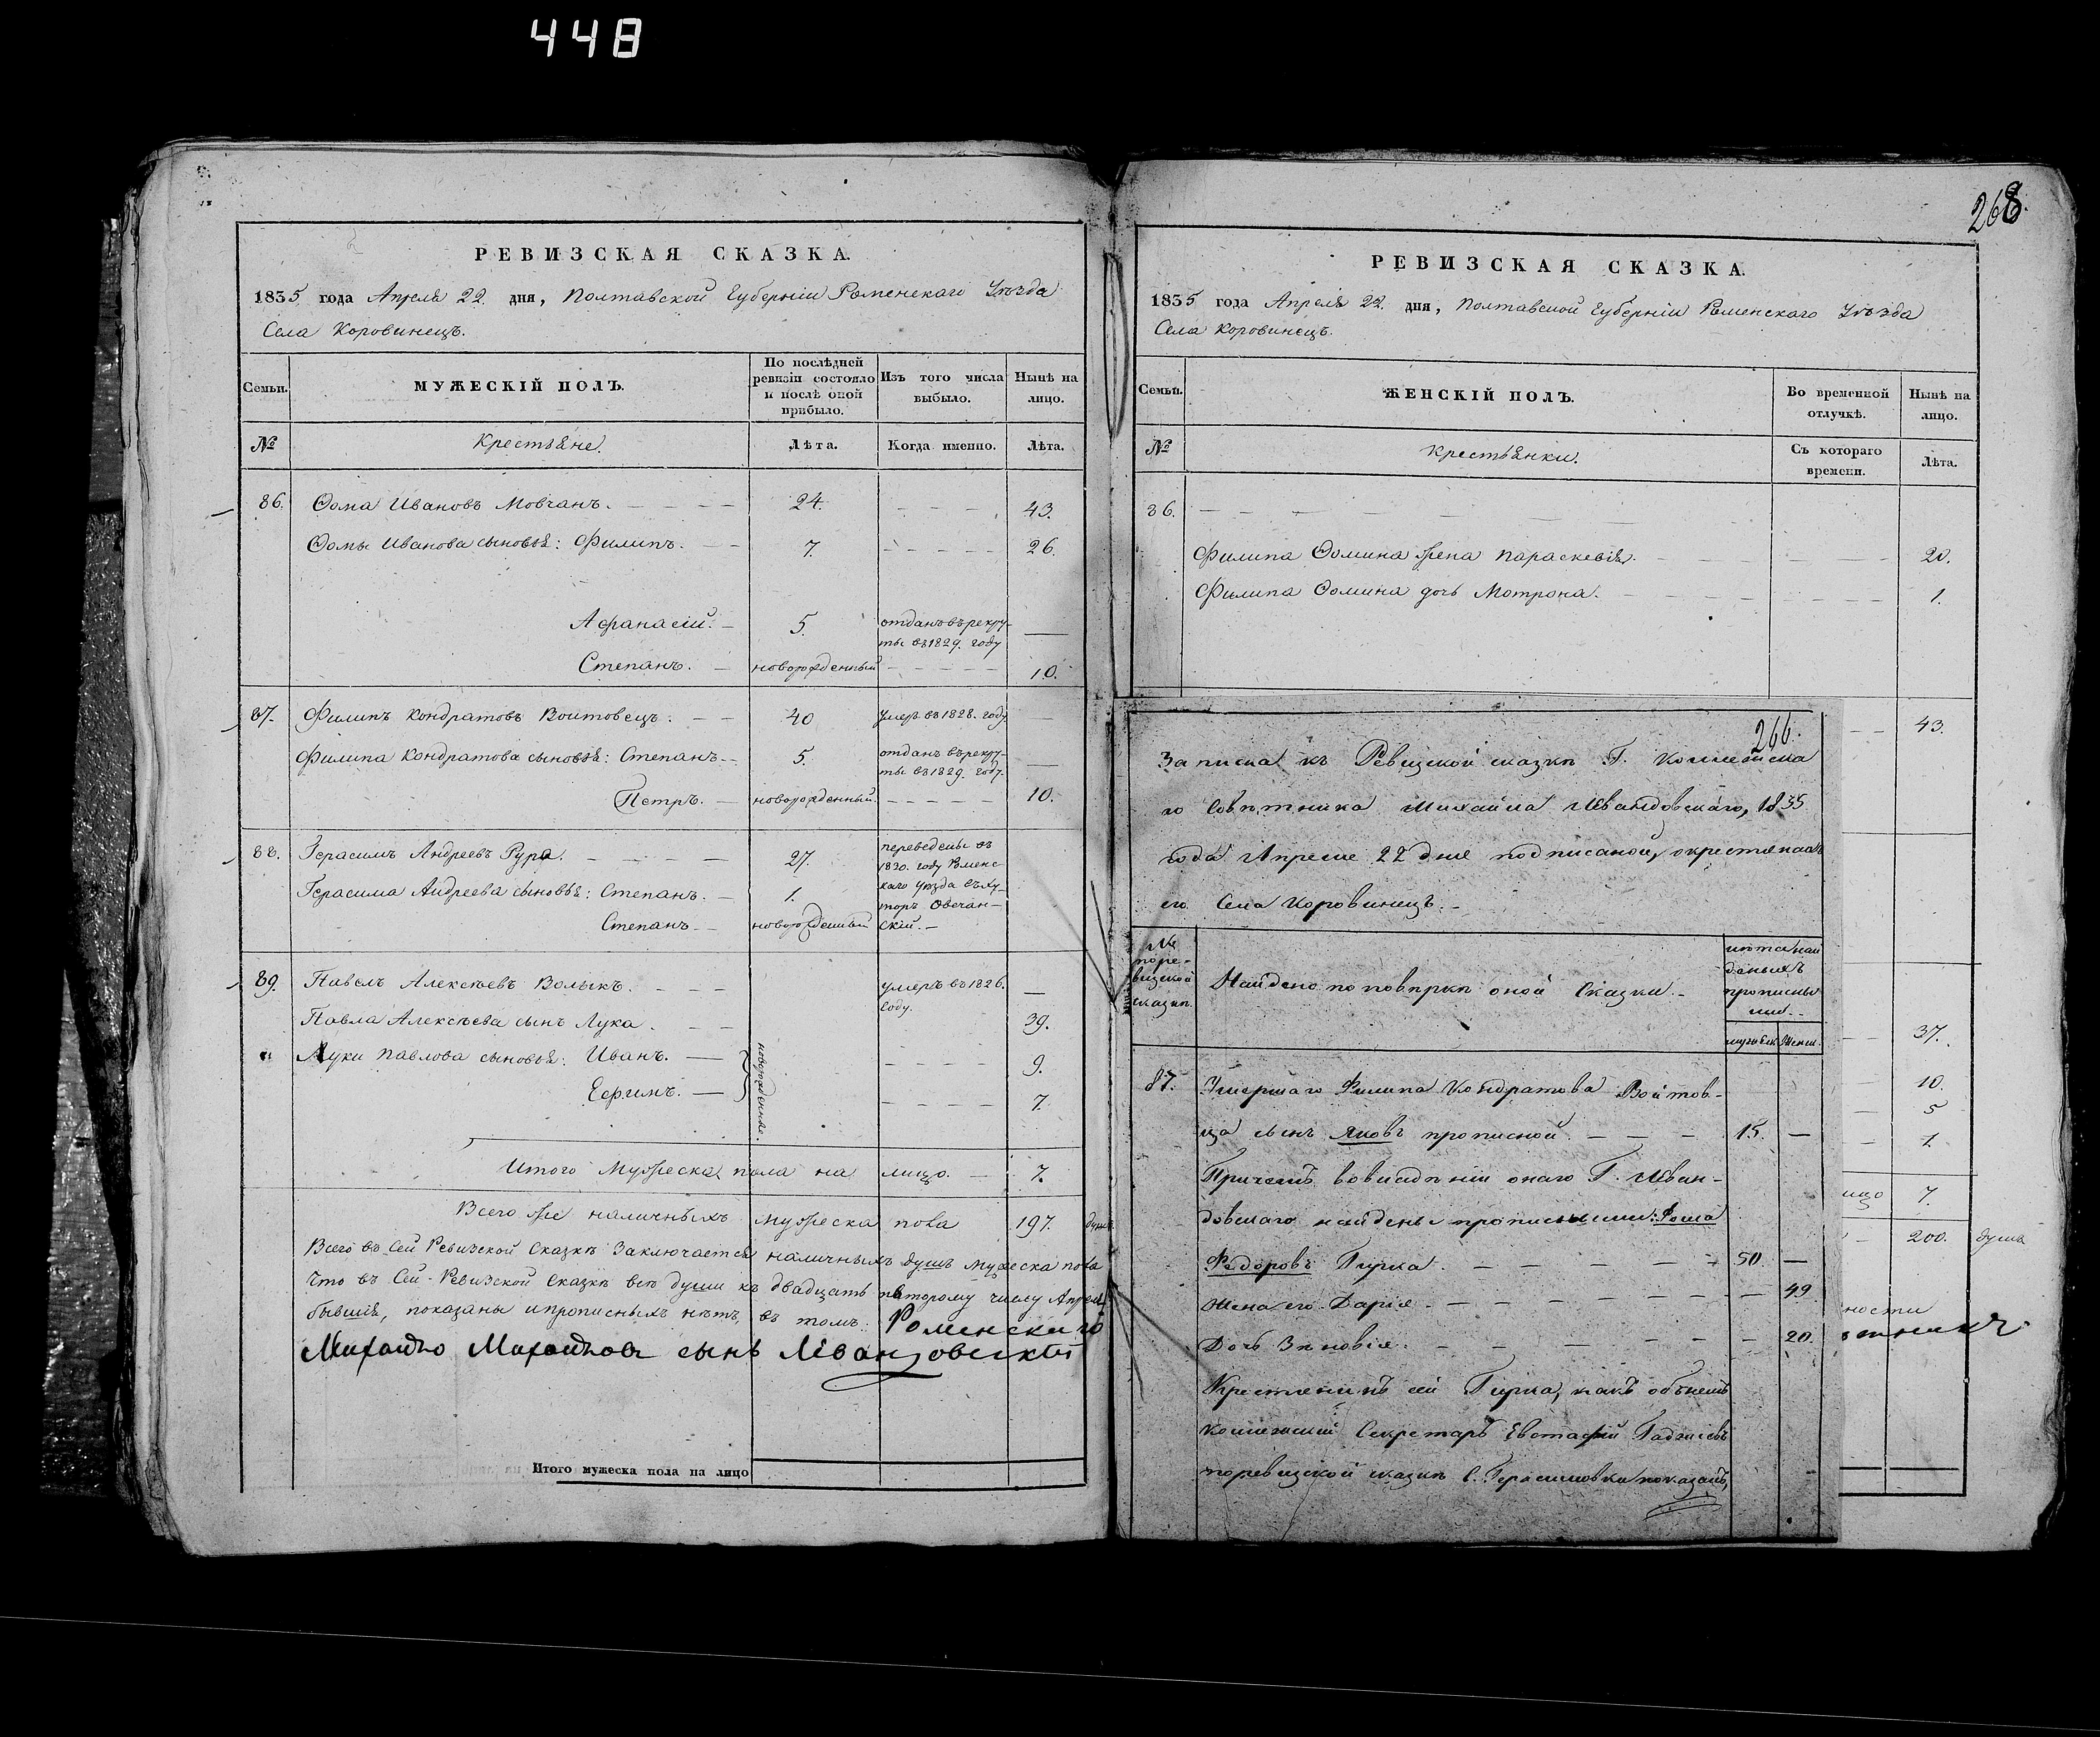 448
268.
РЕВИЗСКАЯ СКАЗКА.
1835 года Апреля 22. дня, Полтавской Губерніи Роменскаго Уѣзда
Села Коровинецъ.
Семьи.
МУЖЕСКІЙ ПОЛЪ.
По послѣдней ревизіи состояло и послѣ оной прибыло.
Изъ того числа выбыло.
Нынѣ на лицо.
№
Крестьяне.
Лѣта.
Когда именно.
Лѣта.
86. Ѳома Ивановъ Мовчанъ. 24. 43.
Ѳомы Иванова сыновья: Филипъ. 7. 26.
Афанасій. 5. отданъ въ рекру-
ты въ 1829. году
Степанъ. новорожденный 10.
87. Филипъ Кондратовъ Воитовецъ. 40 умеръ въ 1828. году
Филипа Кондратова сыновья: Степанъ 5. отданъ въ рекру-
ты въ 1829. году.
Петръ. новорожденный. 10.
88. Герасимъ Андреевъ Рура. 27. переведены въ
1830. году Роменс-
каго уѣзда въ ху-
торъ Овечан-
скій.
Герасима Андреева сыновья: Степанъ. 1.
Степанъ новорожденный
89. Павелъ Алексѣевъ Волыкъ. умеръ въ 1826.
году.
Павла Алексѣева сынъ Лука. 39.
Луки Павлова сыновья: Иванъ. 9.
Ефимъ. 7.
новорожденные.
Итого Мужеска пола на лицо. 7.
Всего же наличныхъ мужеска пола 197. душъ
Всего въ Сей Ревизской Сказкѣ Заключается наличныхъ душъ мужеска пола
Что въ Сей Ревизской Сказкѣ всѣ души къ двадцать второму числу Апреля
бывшія, показаны и прописныхъ нѣтъ, въ томъ. Роменскаго
Михайло Михайловъ сынъ
Итого мужеска пола на лицо
РЕВИЗСКАЯ СКАЗКА.
1835 года Апреля 22. дня, Полтавской Губерніи Роменскаго Уѣзда
Села Коровинецъ.
Семьи.
ЖЕНСКІЙ ПОЛЪ.
Во временной отлучкѣ.
Нынѣ на лицо.
№
Крестьянки.
Съ котораго времени.
Лѣта.
86.
Филипа Ѳомина жена Параскевія. 20.
Филипа Ѳомина дочь Мотрона. 1.
43.
37.
10.
5
1.
лицо 7.
200. душъ
ности
266.
Записка къ Ревизской сказкѣ Г. Коллежска
го Совѣтника Михаила Ивандовскаго, 1835
года Апреля 22 дня подписаной, о крестьянахъ
его Села Коровинецъ.
№ по ре-
визской
сказки.
Найдено по повѣркѣ оной Сказки.
лѣта най
деныхъ
прописны
ми.
мужеск Женск.
87. Умершаго Филипа Кондратова Войтов-
ца сынъ Яковъ прописной. 15.
Причемъ во владѣніи онаго Г. Иван-
довскаго найдены прописными: Фома
Федоровъ Гирка. 50.
Жена его Дарія. 49
Дочь Зѣновія. 20.
Крестьянинъ сей Гирка, какъ объясн
Коллежскій Секретарь Евстафій
по ревизской сказкѣ С. Герасимовки показанъ,